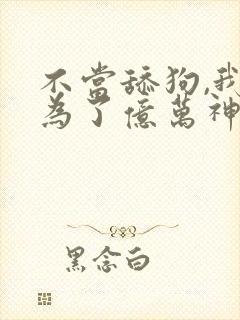 不當舔狗,我
為了億萬神
黑念白